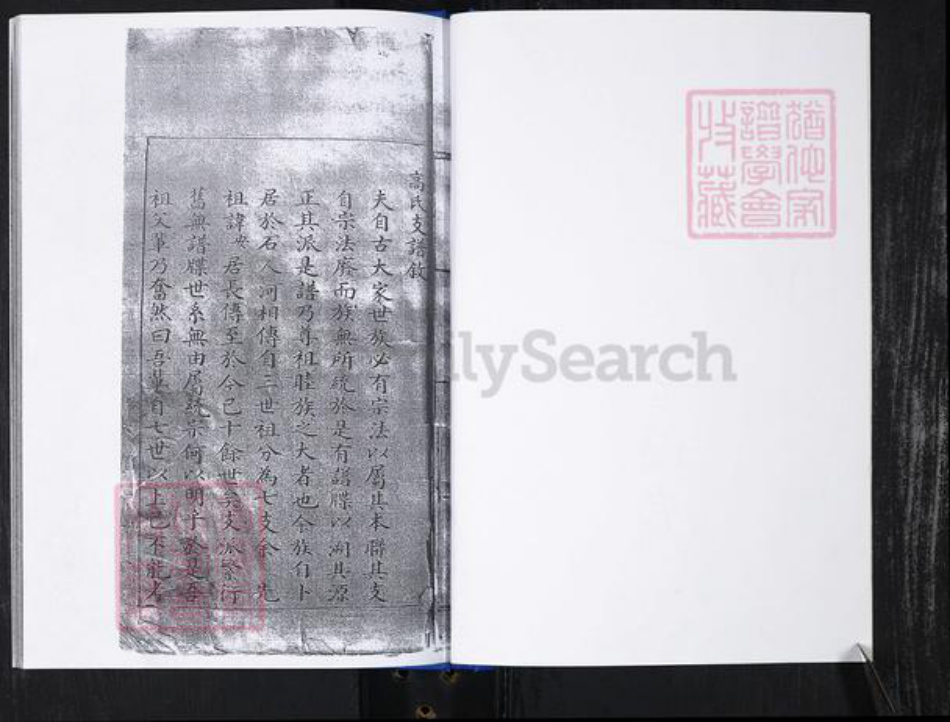 高氏支譜敘
夫自古大家世族必有宗法以屬其本聯其支
自宗法廢而族無所統於是有譜牒以溯其源
正其派是譜乃尊祖睦族之大者也余族自卜
居於石人河相傳自三世祖分為七支余先
祖諱 居長傳至於今已十餘世矣支派繁衍
舊無譜牒世系無由屬統宗何以明乎於是吾
祖父輩乃奮然曰吾輩自七世以上已不能考
猶他家
譜學會
收藏
ilySearch